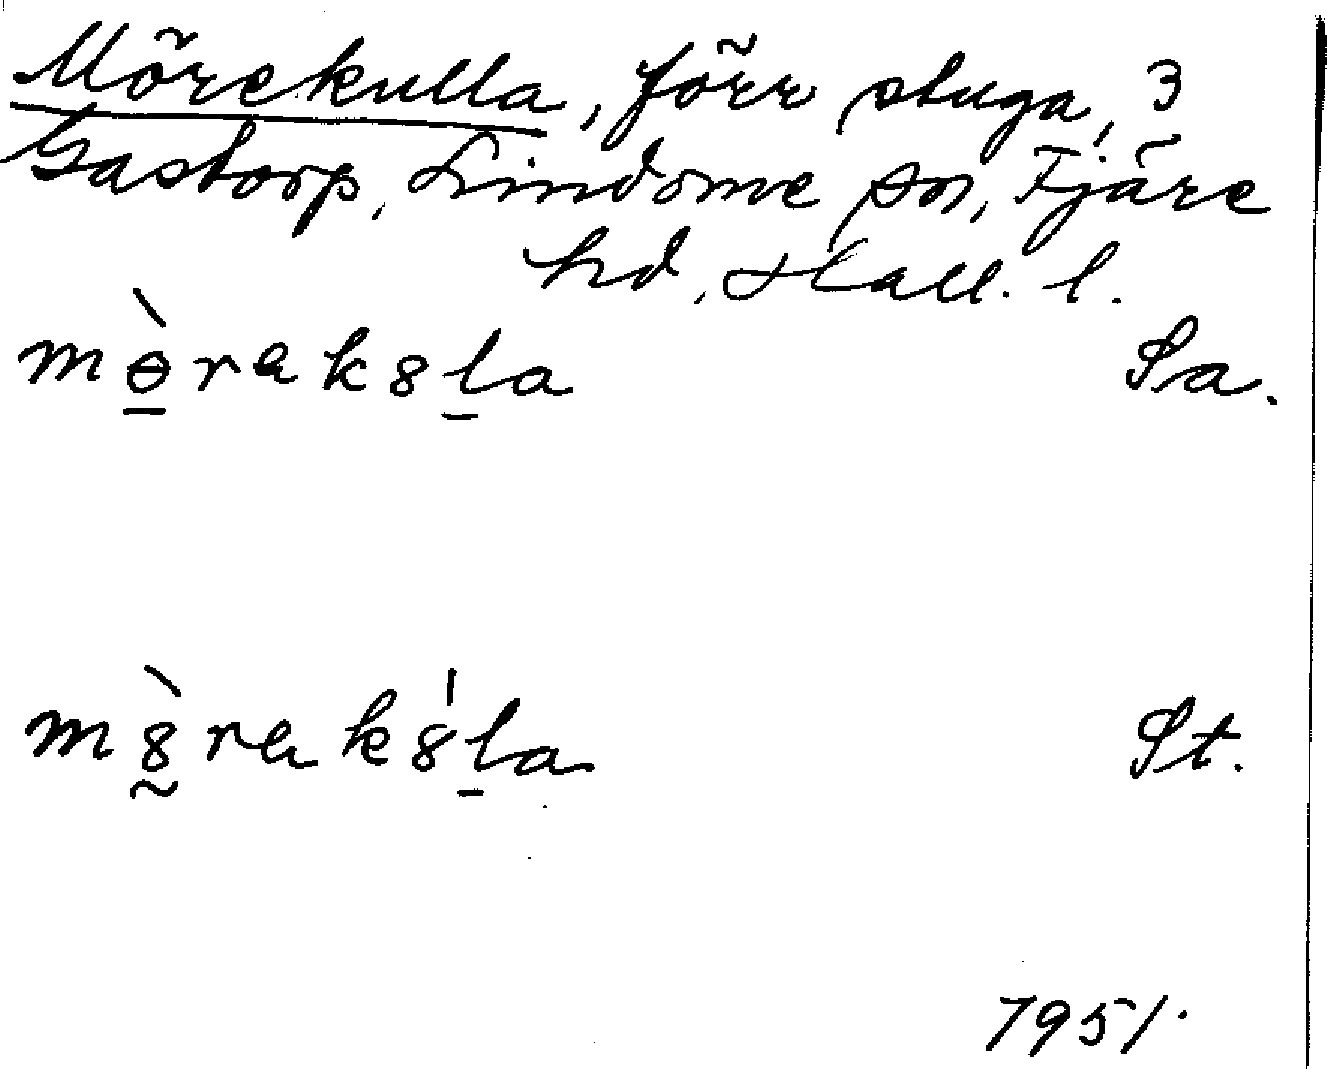 Mörekulla, förr stuga, 3
Gastorp, Lindome sn, Fjäre
hd, Hall. l.
mɵ̀rakȣla Sa.
mȣ̀rakȣ́la St.
1951.